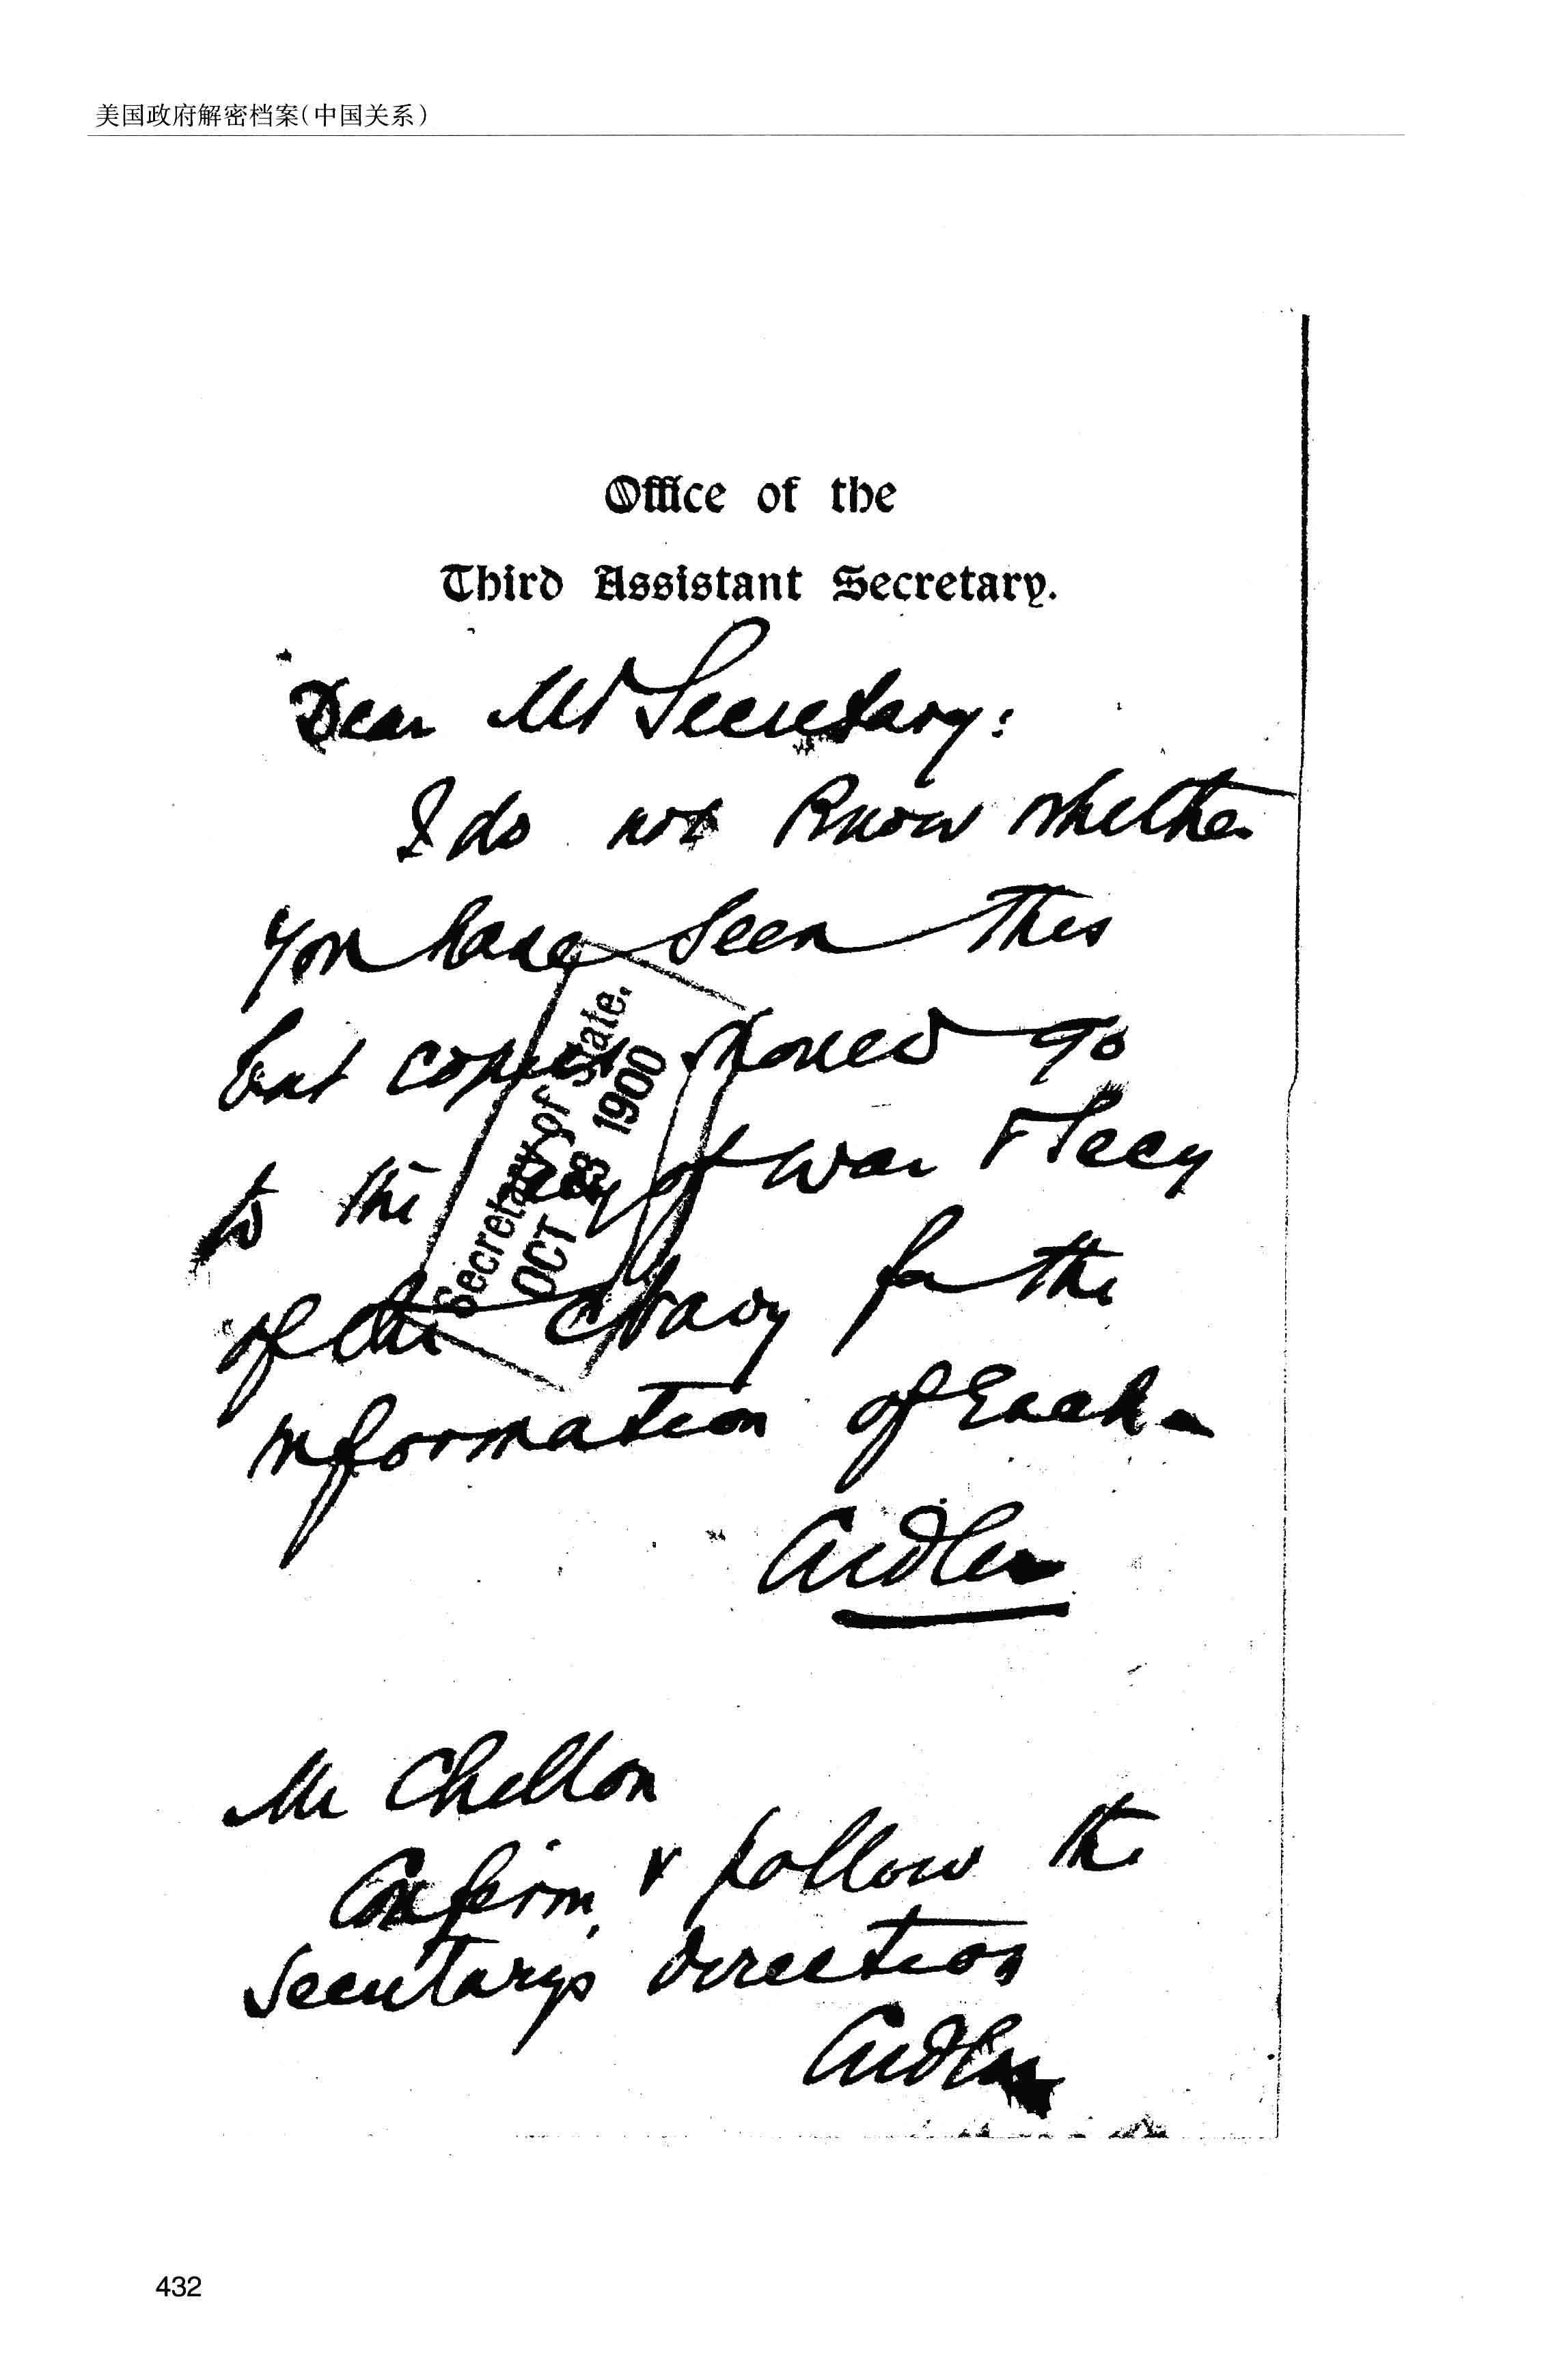 美国政府解密档案(中国关系)
Office of the
Third Assistant Secretary.
Dear Mr Secretary:
I do not know whether
you have seen this
but copies should go
to the Secy of War & Secy
of the Navy for the
information of Each.
Secretary of State,
OCT 23 1900
Mr Chilton
Confirm & follow the
Secretary's direction
432